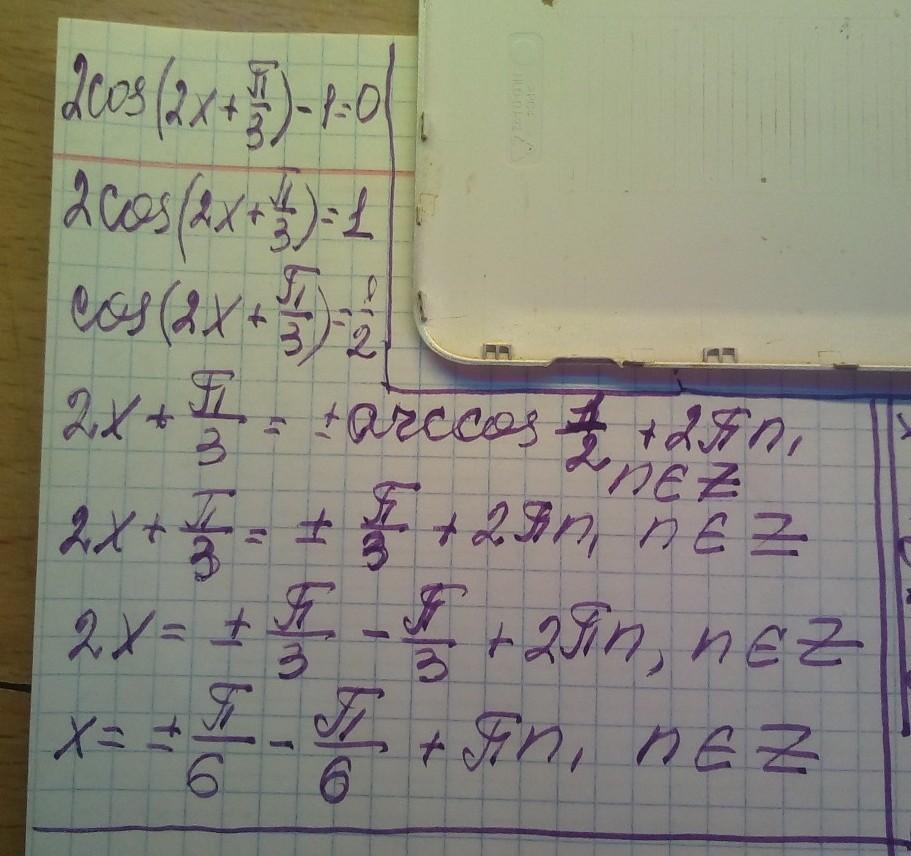 2cos(2x+π/3)-1=0
2cos(2x+π/3)=1
cos(2x+π/3)=1/2
2x+π/3=±arccos 1/2+2πn,
n∈Z
2x+π/3=±π/3+2πn, n∈Z
2x=±π/3-π/3+2πn, n∈Z
x=±π/6-π/6+πn, n∈Z